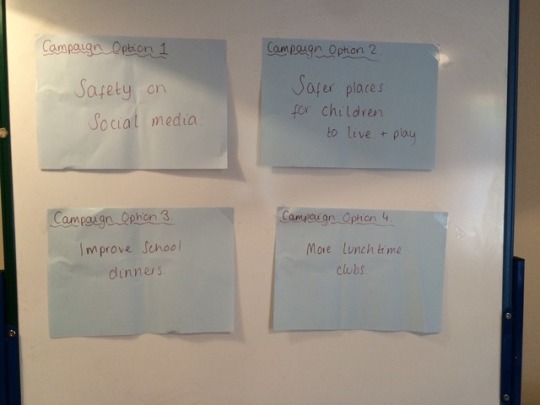 Campaign Option 1
Safety on
Social media
Campaign Option 2
Safer places
for children
to live + play
Campaign Option 3
Improve School
dinners
Campaign Option 4
More lunchtime
clubs